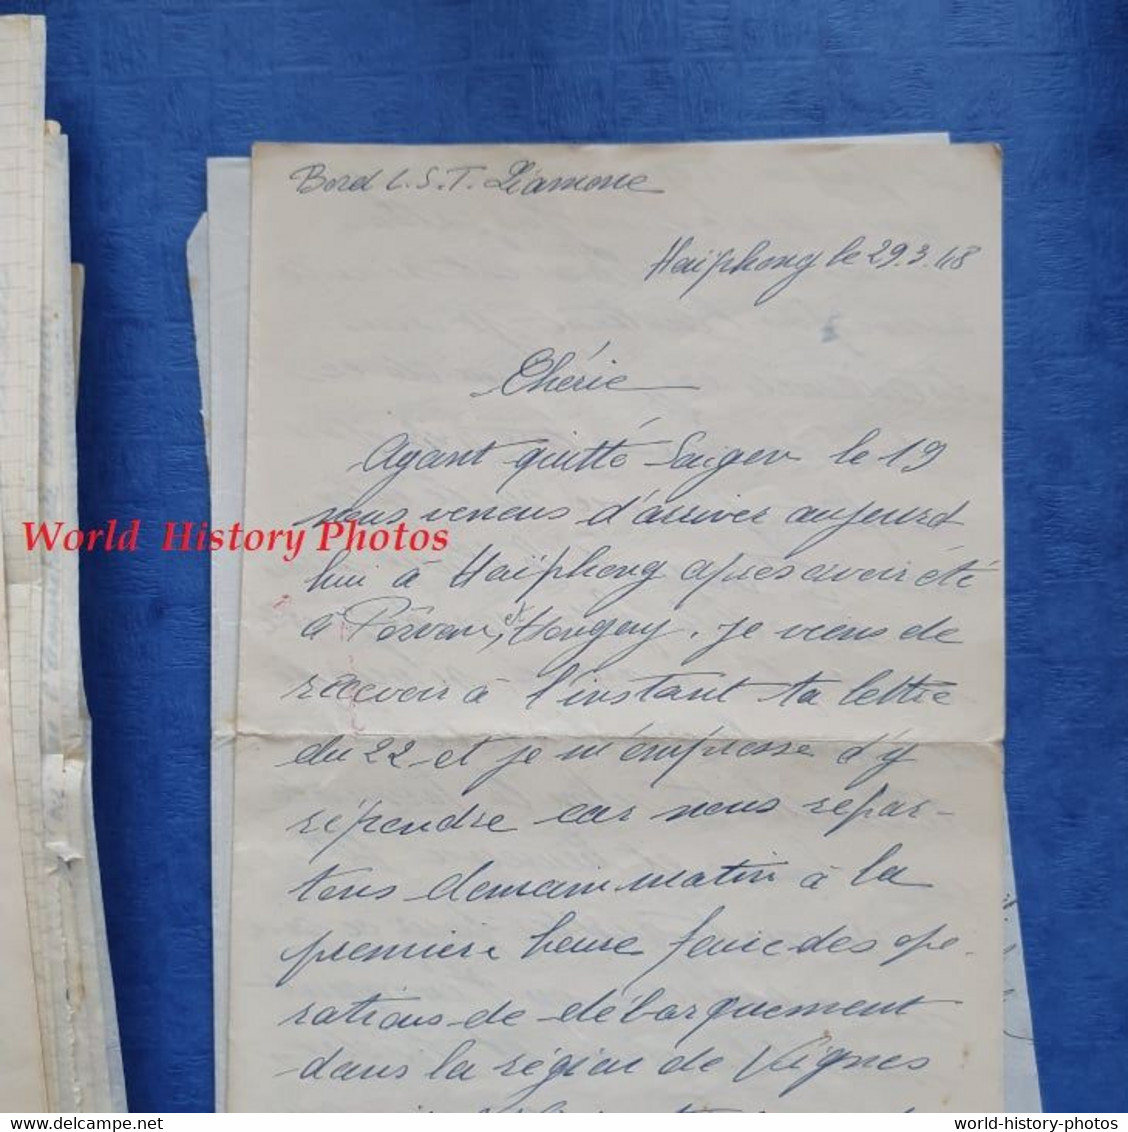 Bord L.S.T. Liamone
Haïphong le 29.3.48
Chérie
Ayant quitté Saigon le 19
nous venons d'arriver aujourd
World History Photos
hui à Haïphong après avoir été
à et Hongay. Je viens de
recevoir à l'instant ta lettre
du 22 et je m'empresse d'y
répondre car nous repar-
tons demain matin à la
première heure faire des opé-
rations de débarquement
dans la région de Vignes
world-history-photos
world-history-photos
delcampe.net